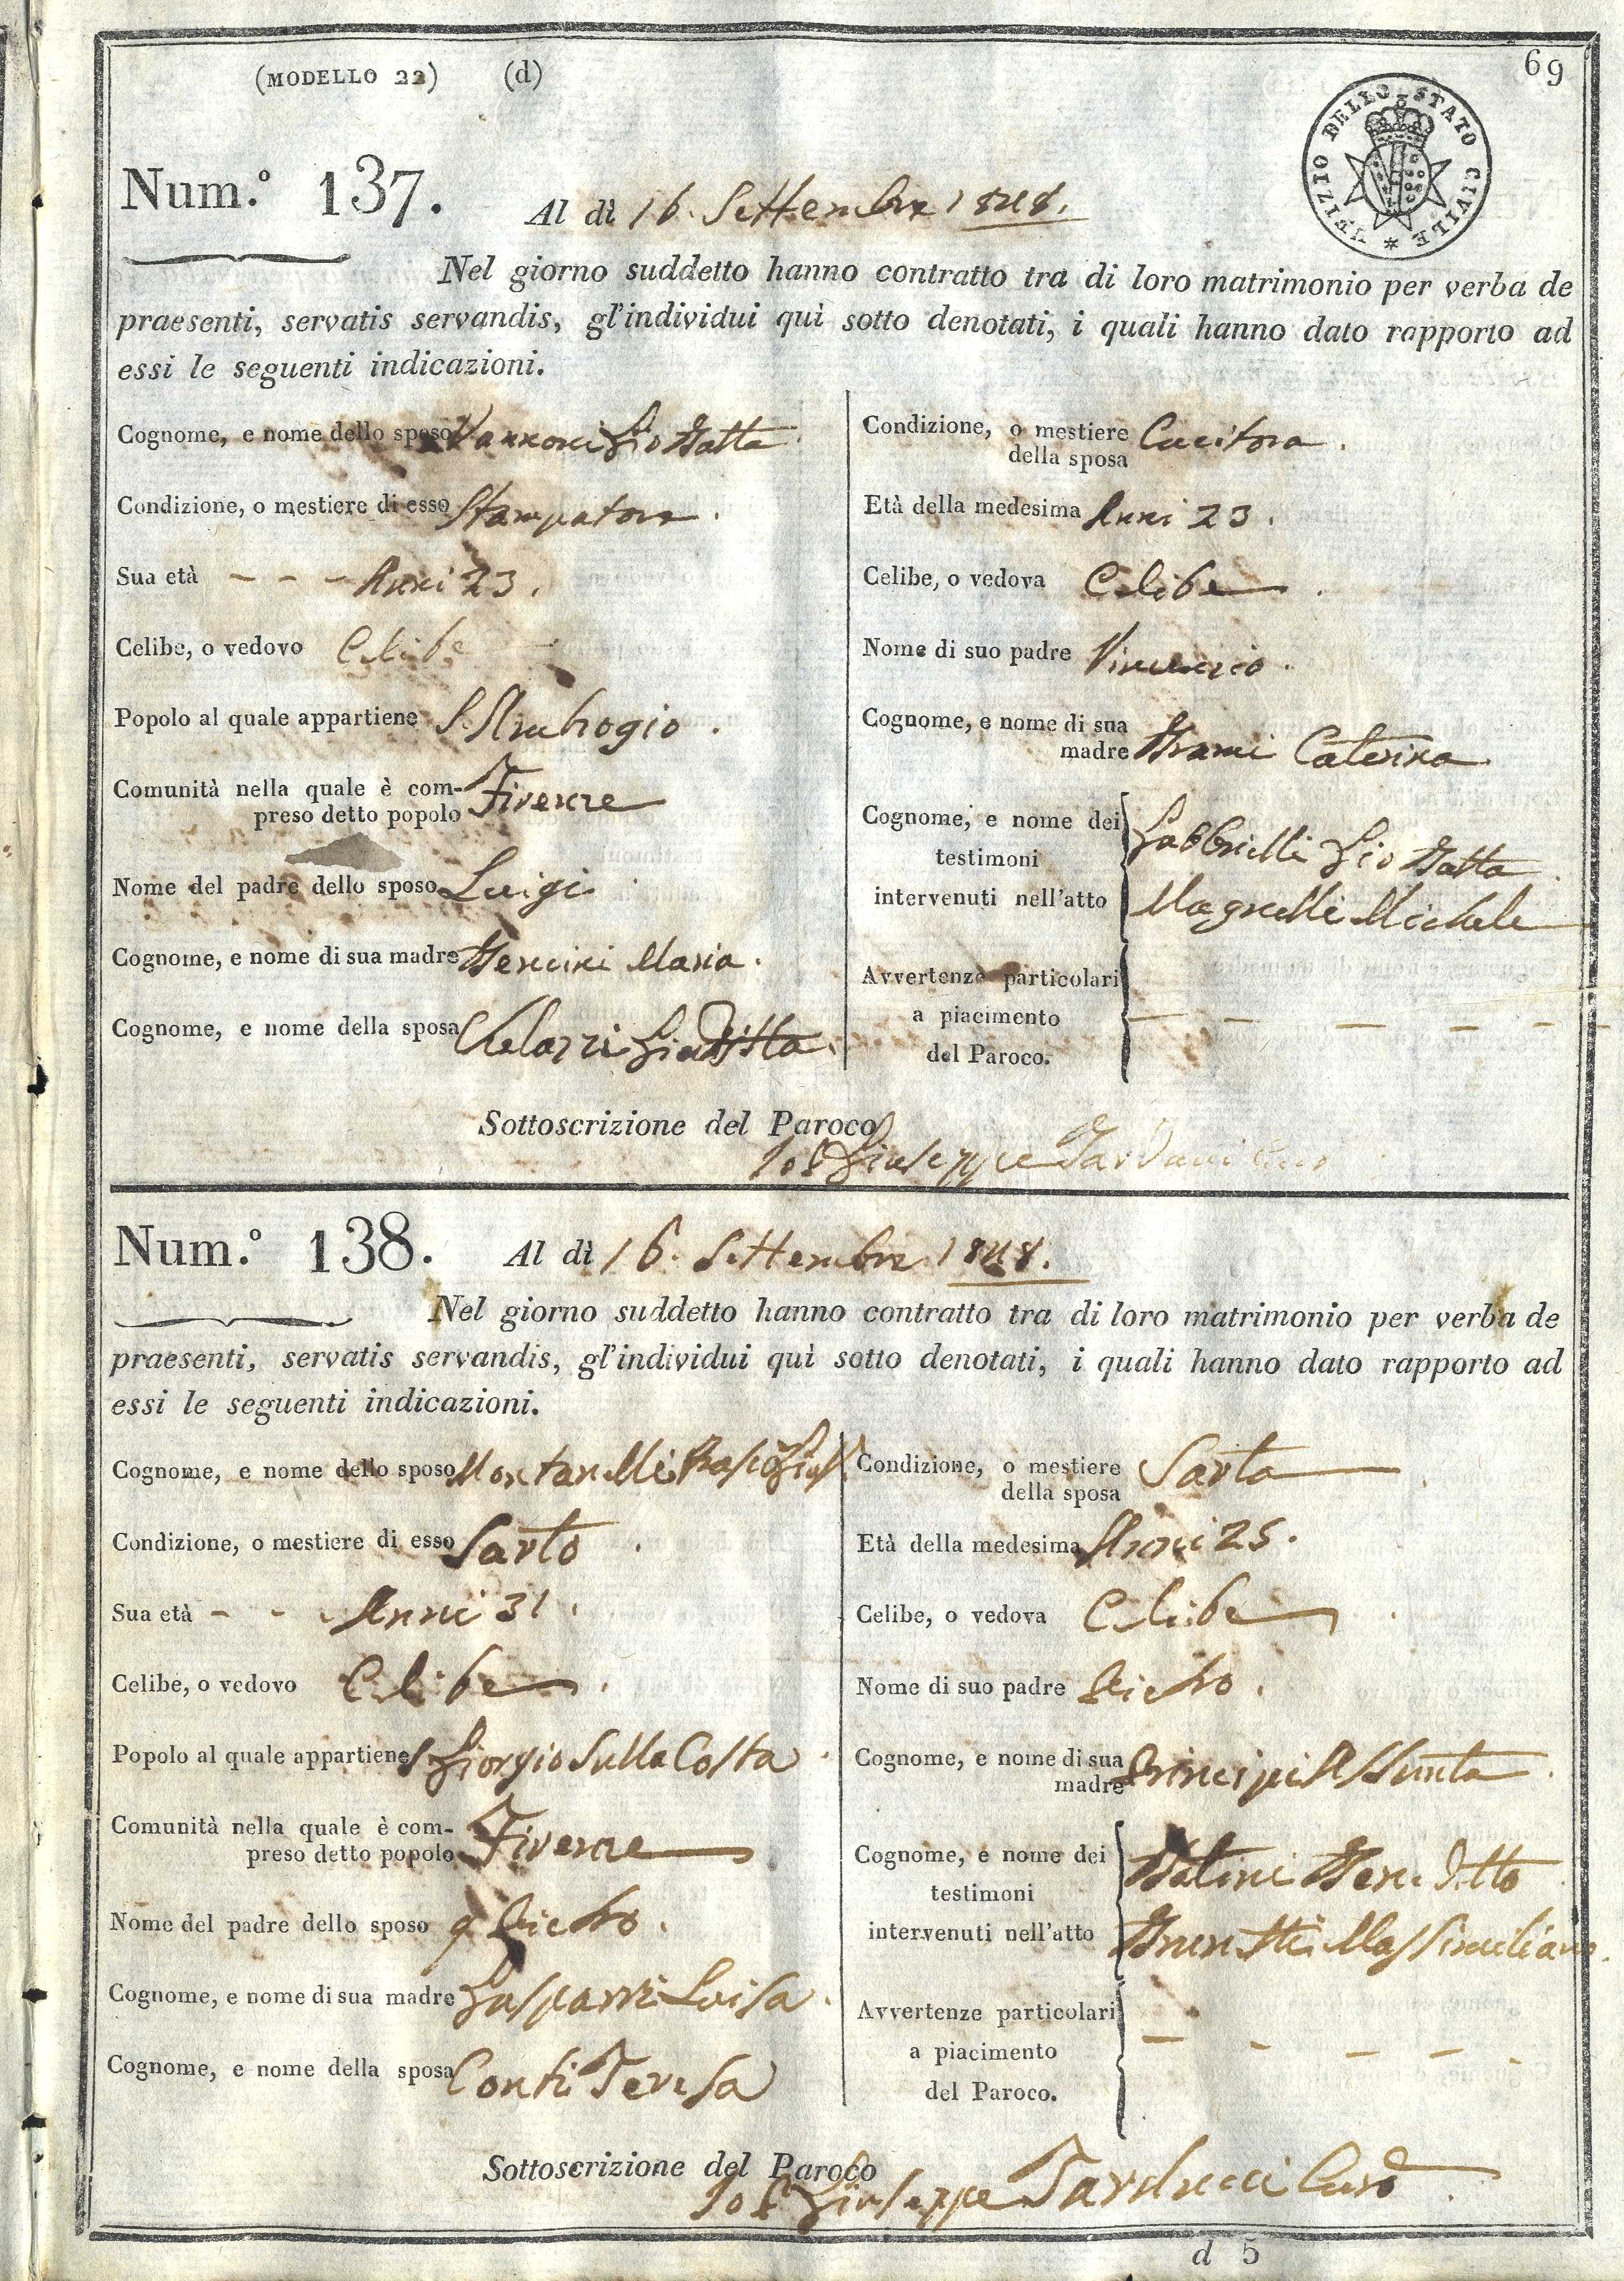 69
(MODELLO 22) (d)
UFIZIO DELLO STATO CIVILE *
Num.° 137. Al dì 16. Settembre 1848.
Nel giorno suddetto hanno contratto tra di loro matrimonio per verba de
praesenti, servatis servandis, gl'individui quì sotto denotati, i quali hanno dato rapporto ad
essi le seguenti indicazioni.
Cognome, e nome dello sposo Vannoni Gio Batta
Condizione, o mestiere di esso Stampatore.
Sua età - - - Anni 23.
Celibe, o vedovo Celibe
Popolo al quale appartiene S. Ambrogio.
Comunità nella quale è com-
preso detto popolo Firenze
Nome del padre dello sposo Luigi
Cognome, e nome di sua madre Bencini Maria.
Cognome, e nome della sposa Giuditta.
Condizione, o mestiere
della sposa Cucitora.
Età della medesima Anni 23.
Celibe, o vedova Celibe.
Nome di suo padre Vincenzio.
Cognome, e nome di sua
madre Caterina.
Cognome, e nome dei
testimoni
intervenuti nell'atto
Gabbrielli Gio Batta.
Magnelli Michele
Avvertenze particolari
a piacimento
del Paroco.
- - - - - -
Sottoscrizione del Paroco
Io P Giuseppe Tarducci Curo
Num.° 138. Al dì 16. Settembre 1848.
Nel giorno suddetto hanno contratto tra di loro matrimonio per verba de
praesenti, servatis servandis, gl'individui quì sotto denotati, i quali hanno dato rapporto ad
essi le seguenti indicazioni.
Cognome, e nome dello sposo Montanelli
Condizione, o mestiere di esso Sarto.
Sua età - - - Anni 31.
Celibe, o vedovo Celibe.
Popolo al quale appartiene S Giorgio Sulla Costa.
Comunità nella quale è com-
preso detto popolo Firenze
Nome del padre dello sposo q Pietro.
Cognome, e nome di sua madre Gasparri Luisa.
Cognome, e nome della sposa Conti Teresa
Condizione, o mestiere
della sposa Sarta.
Età della medesima Anni 25.
Celibe, o vedova Celibe.
Nome di suo padre Pietro.
Cognome, e nome di sua
madre Principi Assunta.
Cognome, e nome dei
testimoni
intervenuti nell'atto
Batini Beneditto.
Brunetti Massimiliano.
Avvertenze particolari
a piacimento
del Paroco.
- - - - .
Sottoscrizione del Paroco
Io P Giuseppe Tarducci Curo.
d 5